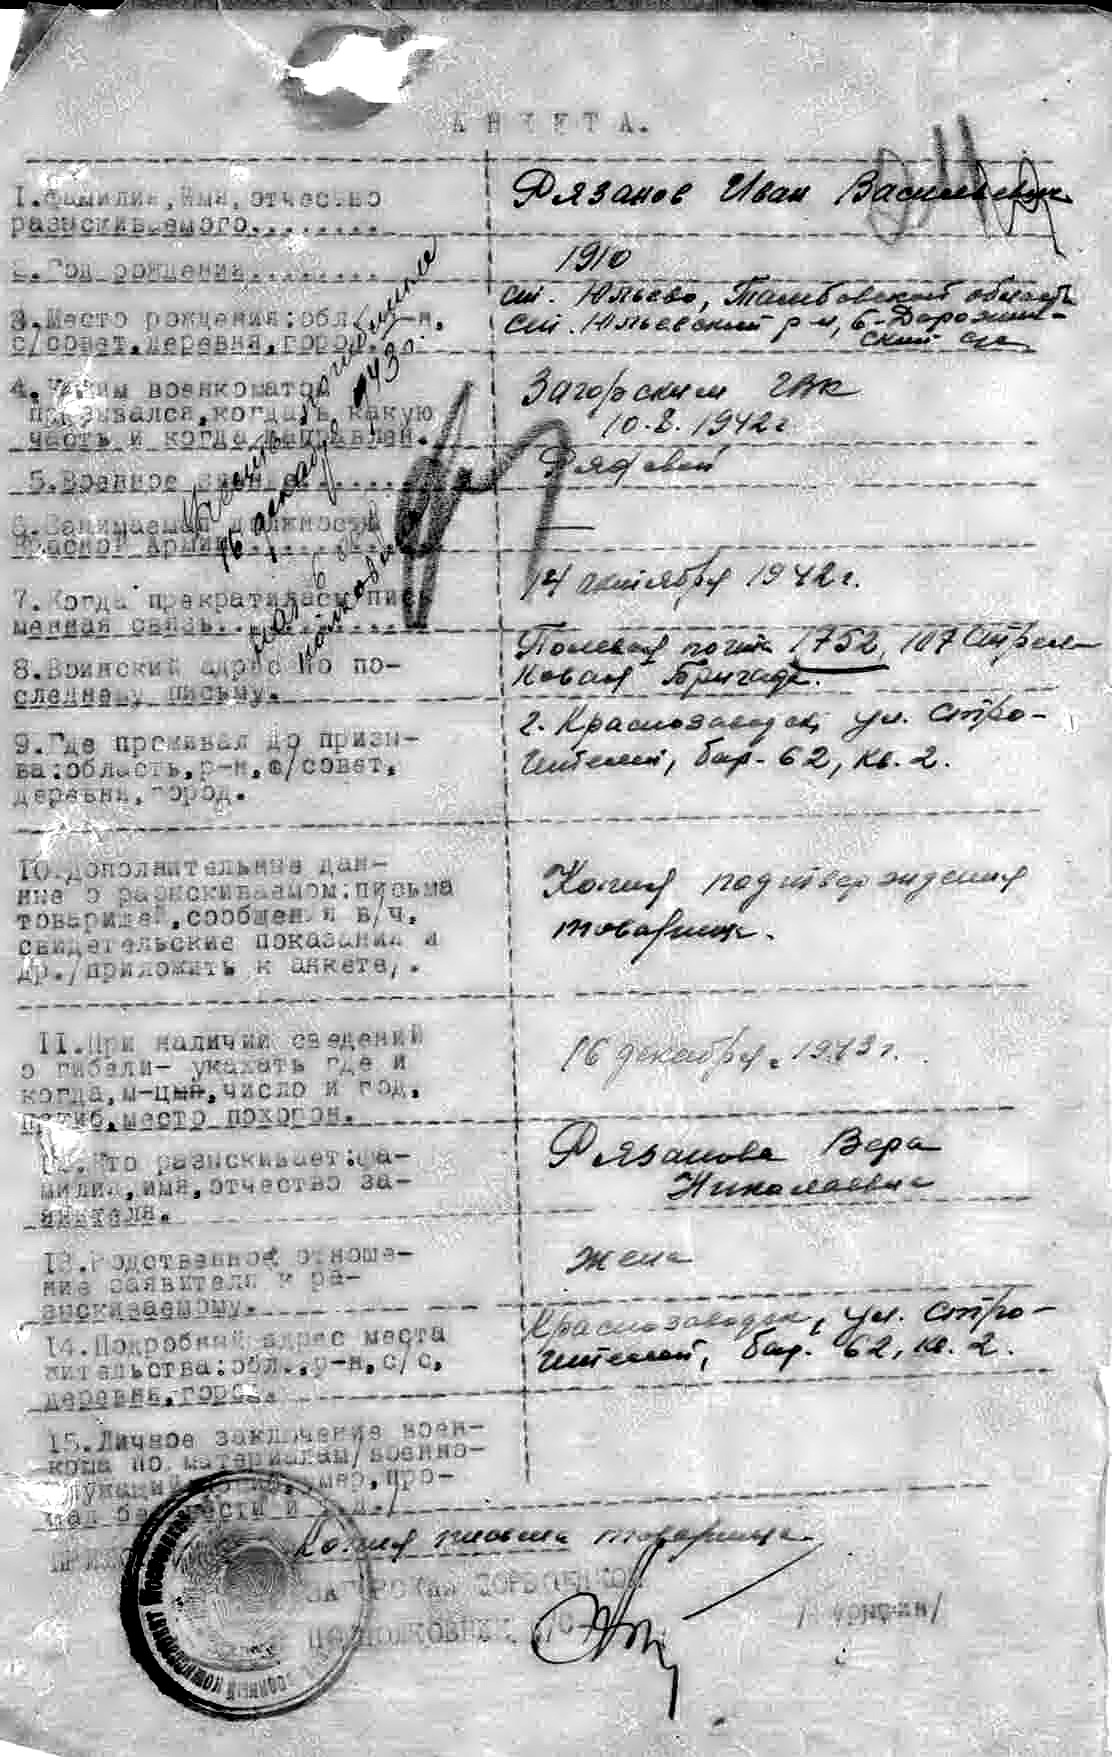 АНКЕТА.
1.Фамилия, Имя, отчество
разыскиваемого........
Рязанов Иван Васильевич
2.Год рождения........
1910
3.Место рождения:обл., р-н,
с/совет,деревня,город.
ст. Юльево, Тамбовской области
ст. Юльевский р-н, Б-Дорожин-
ский с/с
4.Каким военкоматом
призывался,когда,в какую
часть и когда направлен.
Загорским ГВК
10.8.1942г
5.Военное звание
Рядовой
6.Занимаемая должность в
Красной Армии
—
7.Когда прекратилась пись-
менная связь
14 октября 1942г.
8.Воинский адрес по по-
следнему письму.
Полевая почта 1752, 107 Стрел-
ковая Бригада.
9.Где проживал до призы-
ва:область,р-н,с/совет,
деревня,город.
г. Краснозаводск, ул. Строи-
ителей, бар. 62, кв. 2.
10.Дополнительные дан-
ные о разыскиваемом:письма
товарищей,сообщения в/ч,
свидетельские показания и
др./приложить к анкете/.
Копия подтверждения
товарища.
11.При наличии сведений
о гибели- указать где и
когда,м-цый,число и год,
погиб,место похорон.
16 декабря 1943г.
12.Кто разыскивает:фа-
милия,имя,отчество за-
явителя.
Рязанова Вера
Николаевна
13.Родственное отноше-
ние заявителя к ра-
зыскиваемому.
жена
14.Подробный адрес места
жительства:обл.,р-н,с/с,
деревня,город.
Краснозаводск, ул. Стро-
ителей, бар. 62, кв. 2.
15.Личное заключение воен-
кома по материалам/военно-
служащий погиб,умер,про-
пал без вести и т.д./
Копия письма товарища.
ЗАГОРСКИЙ ГОРВОЕНКОМ
ПОДПОЛКОВНИК